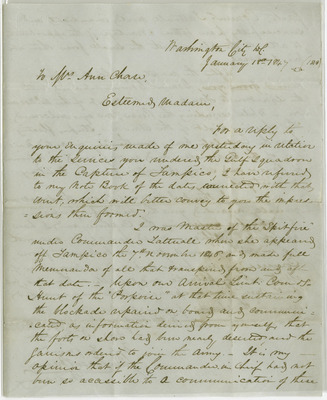 Washington City DC
January 18th 1847
To Mrs Ann Chase,
Esteemed Madam,
For a reply to
your enquiries made of me yesterday in relation
to the services you rendered the Gulf Squadron
in the Capture of Tampico, I have referred
to my Note Book of the dates connected with that
event, which will better convey to you the impres-
sions then formed.
I was Master of the Spitfire
under Commander Tattnall when she appeared
off Tampico the 7th November 1846 and made full
Memoranda of all that transpired from and after
that date. Upon our arrival Lieut Com
Hunt of the "Porpoise" at that time sustaining
the blockade repaired on board and communi-
cated as information derived from yourself that
the forts on shore had been nearly deserted and the
Garrisons ordered to join the Army - It is my
opinion that if the Commander in chief had not
been so accessible to a communication of these